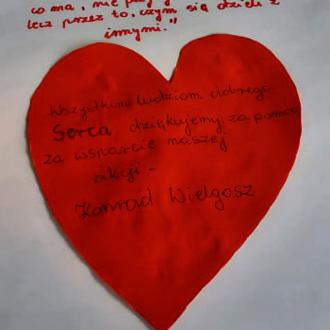 co ma, nie
lecz przez to, czym się dzieli z
innymi."
Wszystkim ludziom dobrego
Serca dziękujemy za pomoc
za wsparcie naszej
akcji -
Konrad Wielgosz